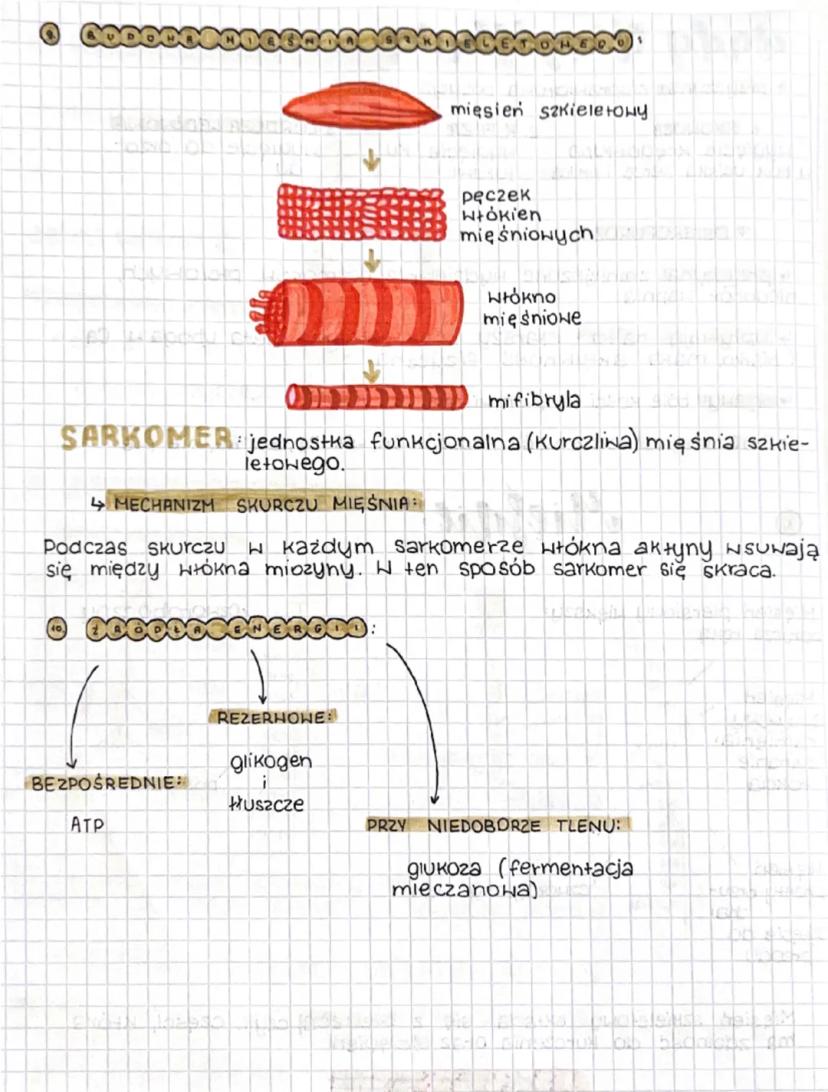 9. BUDOWA MIĘŚNIA SZKIELETOWEGO:
mięsień szkieletowy
pęczek
włókien
mięśniowych
włókno
mięśniowe
mifibryla
SARKOMER: jednostka funkcjonalna (kurczliwa) mięśnia szkie-
letowego.
↳ MECHANIZM SKURCZU MIĘŚNIA:
Podczas skurczu w każdym sarkomerze włókna aktyny wsuwają
się między włókna miozyny. W ten sposób sarkomer się skraca.
10. ŹRÓDŁA ENERGII:
REZERWOWE:
glikogen
i
tłuszcze
BEZPOŚREDNIE:
ATP
PRZY NIEDOBORZE TLENU:
glukoza (fermentacja
mleczanowa)